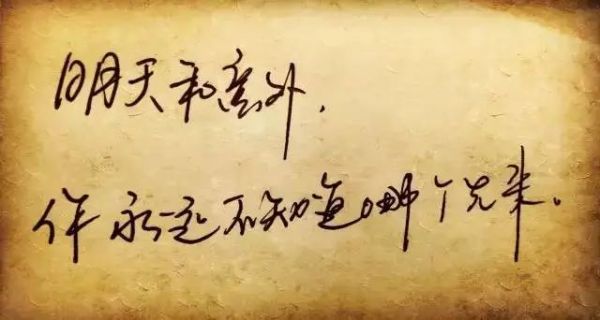 明天和意外，
你永远不知道哪个先来。